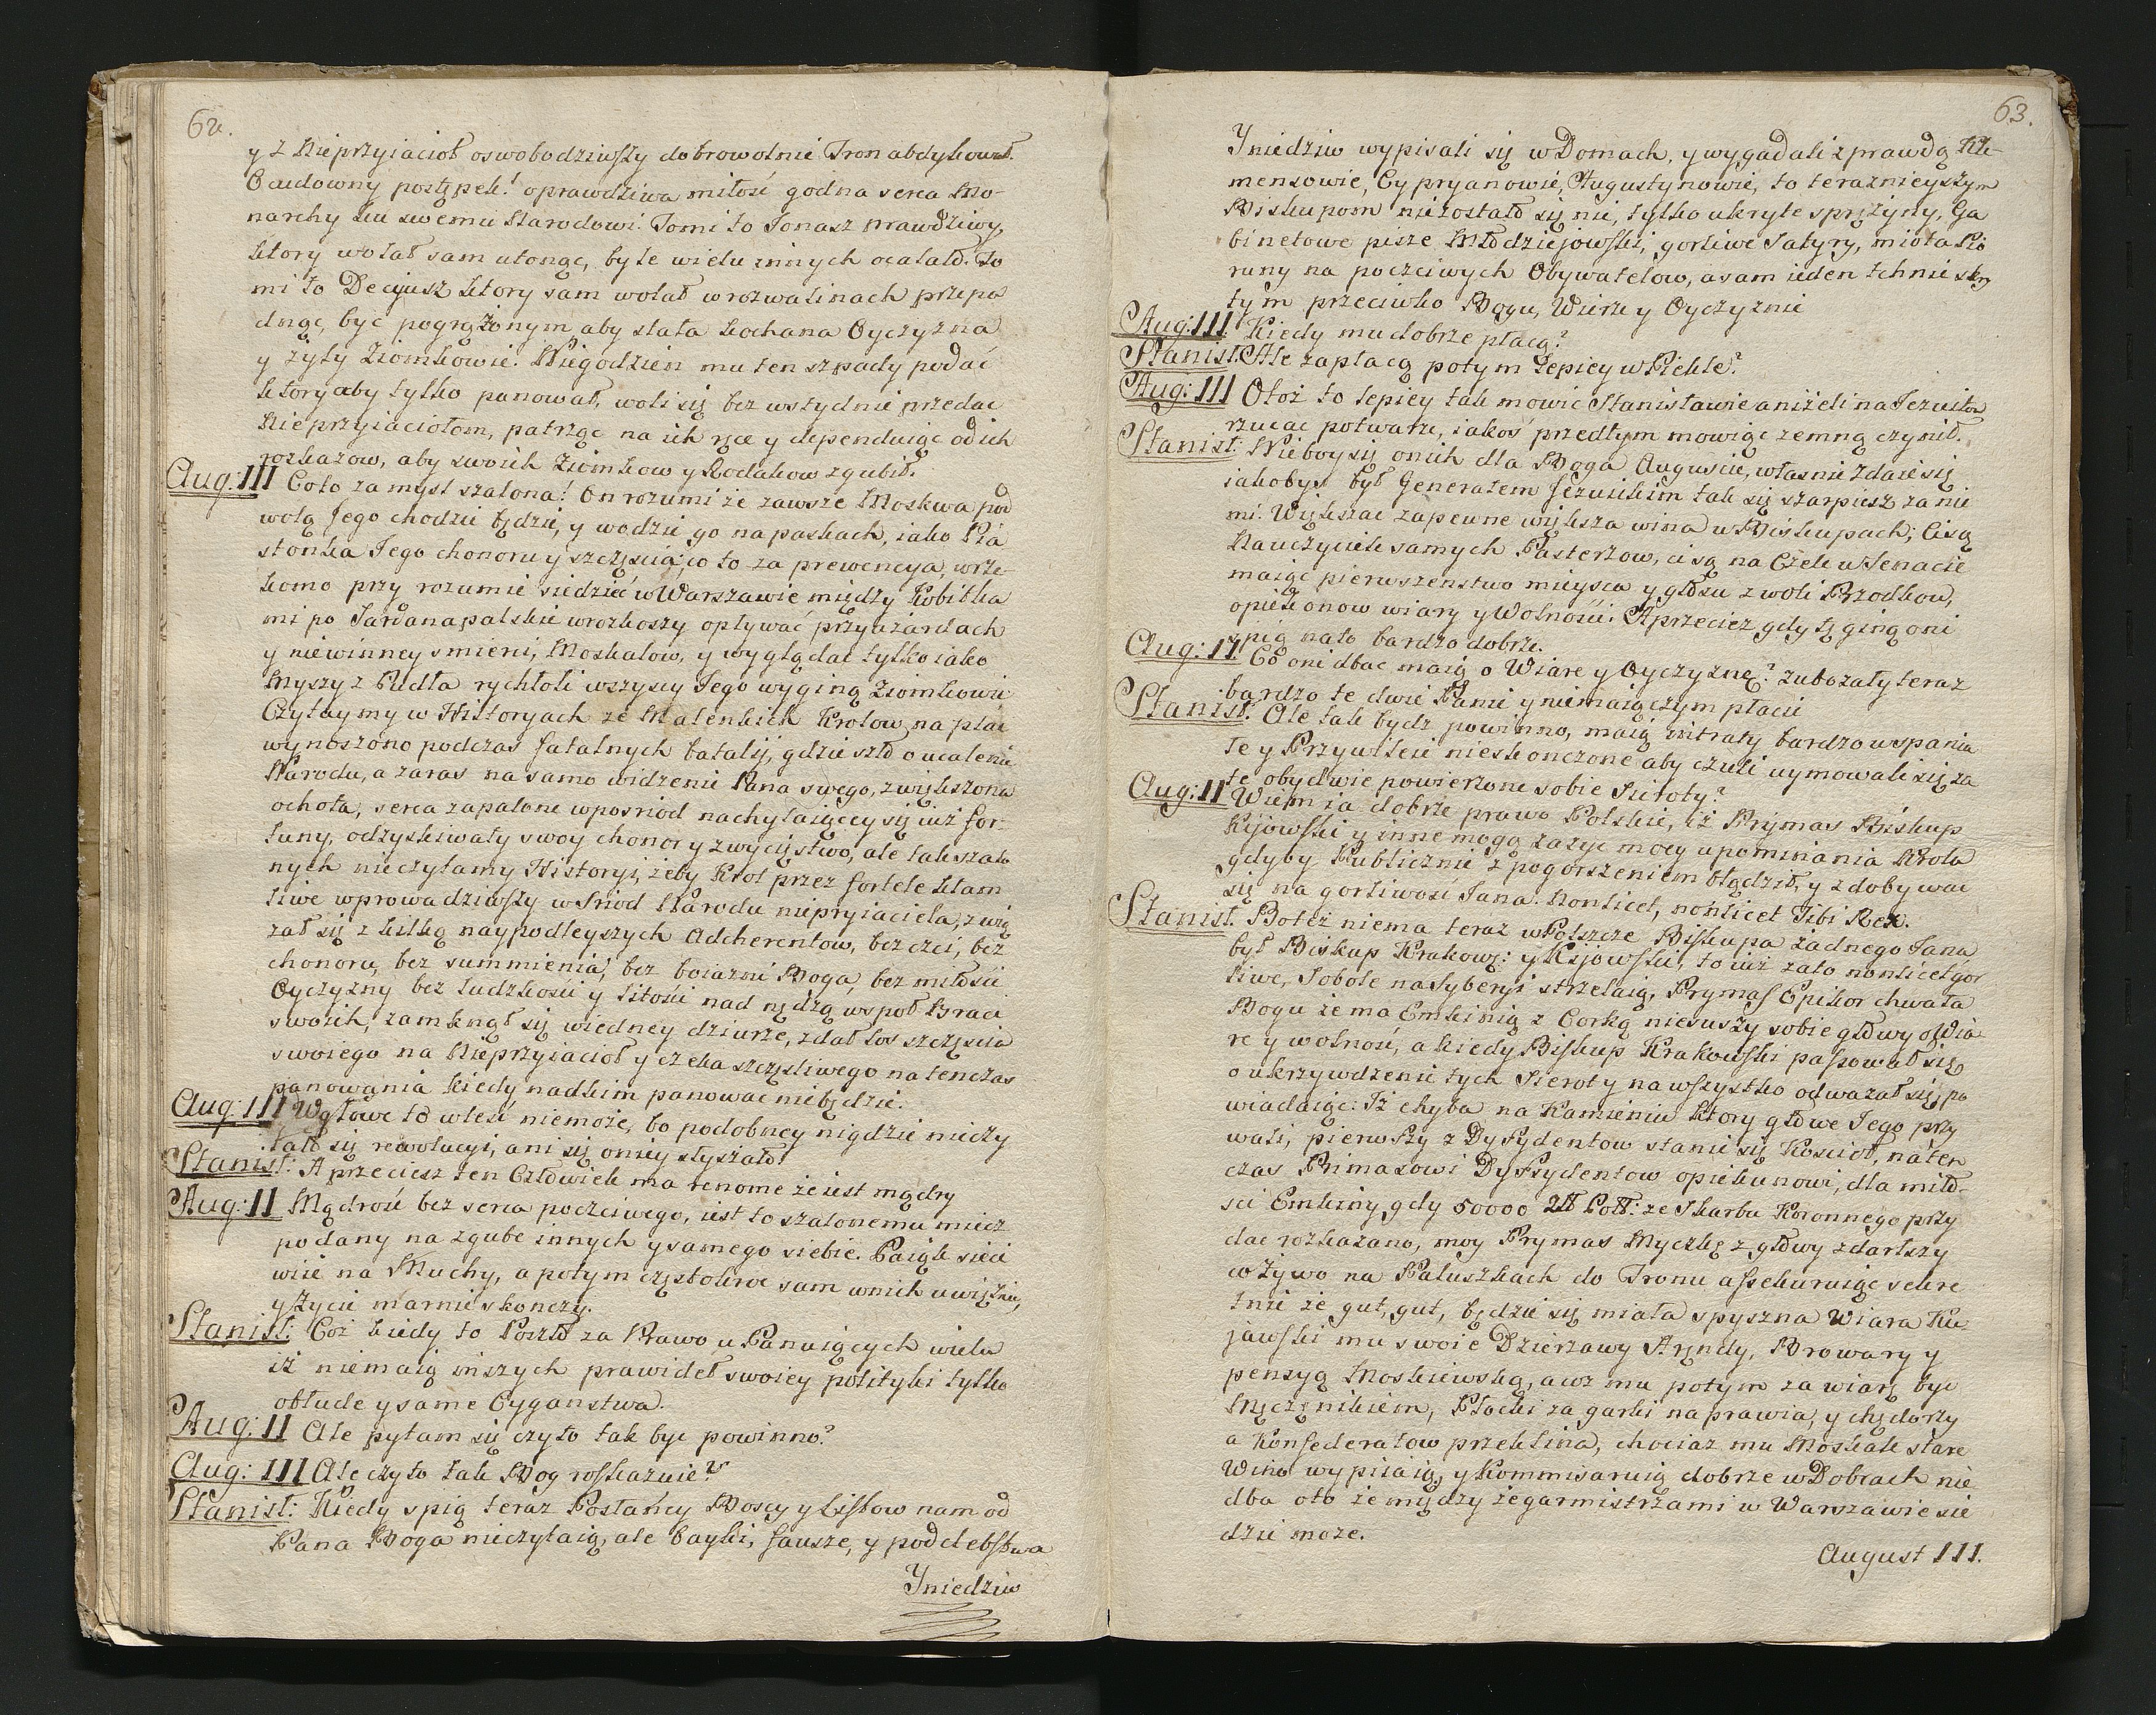 62.
y z Nieprzyiacioł oswobodziwszy dobrowolnie Tron abdykował.
Cudowny postępek! o prawdziwa miłość godna serca Mo-
narchy ku swemu Narodowi. Tomi to Jonasz prawdziwy,
ktory wolał sam utonąc, byle wielu innych ocalało. To
mi to Decyusz ktory sam wolał w rozwalinach przepa
dnąc, być pogrążonym aby stała kochana Oyczyzna
y żyły Ziomkowie. Niegodzien mu ten szpady podać
ktory aby tylko panował, woli się bez wstydnie przedac
Nieprzyiaciołom, patrząc na ich ręce y dependuiąc od ich
rozkazow, aby swoich Ziomkow y Rodakow zgubił.
Aug: III Coto za mysl szalona! On rozumi że zawsze Moskwa pod
wolą Jego chodzić będzie, y wodzić go na paskach, iako Pia
stonka Jego chonoru y szczęscia; co to za prewencya, wrze-
komo przy rozumie siedzieć w Warszawie między Kobitka
mi po Sardanapalskie w rozkoszy opływać przy
y niewinney smierci, Moskalow, y wyglądac tylko iako
Myszy z Pudła rychłoli wszyscy Jego wyginą Ziomkowie
Czytaymy w Historyach że Malenkich Krolow na plac
wynoszono podczas fatalnych batalij, gdzie szło o ucalenie
Narodu, a zaras na samo widzenie Pana swego, zwiększona
ochota, serca zapalone wposriod nachylaiącey się iuż for-
tuny, odzyskiwały swoy chonor y zwycięstwo, ale tak szalo
nych nieczytamy Historyi, żeby Krol przez fortele kłam
liwe wprowadziwszy w Sriod Narodu nieprzyiaciela, zwią
zał się z kilką naypodleyszych Adcherentow, bez czci, bez
chonoru, bez summienia, bez boiazni Boga, bez miłości
Oyczyzny bez ludzkości y litości nad nędzą wspoł Braci
swoich, zamknął się wiedney dziurze, zdał los szczęscia
swoiego na Nieprzyiacioł y czeka szczęsliwego natenczas
panowania kiedy nadkim panowac niebędzie.
Aug: III W głowe to wleść niemoże, bo podobney nigdzie nieczy
tało się rewolucyi, ani się oniey słyszało!
Stanisł: A przeciesz ten Człowiek ma renome że iest mądry
Aug: II Mądrość bez serca poczciwego, iest to szalonemu miecz
podany na zgube innych y samego siebie. Paiąk sieci
wiie na Muchy, a potym częstokroc sam wnich uwiężnie,
y Życie marnie skonczy.
Stanisł: Coż kiedy to Poszło za Prawo u Panuiących wielu
iż niemaią inszych prawideł swoiey polityki tylko
obłude y same Cyganstwa.
Aug: II Ale pytam się czy to tak byc powinno?
Aug: III Ale czy to tak Bog roskazuie?
Stanisł: Kiedy spią teraz Posłańcy Boscy y Listow nam od
Pana Boga nieczytaią, ale bayki, fausze, y podchlebstwa
Yniedziw
63.
Yniedziw wypisali się w Domach, y wygadali z prawdą Kle-
mensowie, Cypryanowie, Augustynowie, to teraznieyszym
Biskupom niezostało się nic, tylko ukryte sprężyny, Ga
binetowe pisze Młodziejowski, gorliwe Satyry, miota Pio
runy na poczciwych Obywatelow, a sam ieden tchnie skry
tym przeciwko Bogu, Wierze y Oyczyznie
Aug: III. Kiedy mu dobrze płacą?
Stanisł: Ale zapłacą potym Lepiey w Piekle?
Aug: III Otoż to lepiey tak mowić Stanisławie aniżeli na Jezuitow
rzucac potwarze, iakoś przedtym mowiąc zemną czynił.
Stanisł: Nieboy się onich dla Boga Auguscie, własnie zdaie się
iakobyś był Generałem Jezuickim tak się szarpiesz za nie
mi. Większac zapewne większa wina w Biskupach; Cisą
Nauczyciele samych Pasterzow, ci są na Czele w Senacie
maiąc pierwszenstwo mieysca y głosu z woli Przodkow,
opiekonow wiary y Wolności: A przeciez gdy tę giną oni
spią nato bardzo dobrze.
Aug: II. Co oni dbac maią o Wiare y Oyczyznę? zubożały teraz
bardzo te dwie Panie y niemaią czym płacic
Stanisł: Ale tak bydz powinno, maią intraty bardzo wspania
łe y Przywileie nieskonczone aby czuli uymowali się za
te obydwie powierzone sobie Sieroty?
Aug: II Wiem ia dobrze prawo Polskie, iż Prymas Biskup
Kijowski y inne mogą zażyc mocy upominania Krola
gdyby Publicznie z pogorszeniem błądził, y zdobywac
się na gorliwosc Jana. Nonlicet, nonlicet Tibi Rex.
Stanisł. Boteż niema teraz w Polszcze Biskupa żadnego Jana
był Biskup Krakows: y Kijowski, to iuż zato nonlicet gor
liwe, Sobole na Syberyi strzelaią, Prymas Epikor chwała
Bogu że ma Emkinią z Corką niesuszy sobie głowy o Wia-
re y wolność, a kiedy Biskup Krakowski passował się
o ukrzywdzenie tych Sieroty nawszystko odważał się, po
wiadaiąc: Iż chyba na Kamieniu ktory głowe Jego przy
wali, pierwszy z Dyssydentow stanie się Kościoł, naten
czas Primasowi Dyssydentow opiekunowi, dla miło-
sci Emkiny gdy 50000 Zł Poll: ze Skarbu Koronnego przy
dac rozkazano, moy Prymas Myczkę z głowy zdartszy
co żywo na Paluszkach do Tronu assekuruiąc sekre
tnie że gut, gut, będzie się miała spyszna Wiara Ku
jawski mu swoie Dzierzawy Arędy, Browary y
pensyą Moskiewską, a wz mu potym za wiarę byc
Męczęnikiem, Płocki za garki naprawia, y chędorzy
a Konfederatow przeklina, chociaz mu Moskale stare
Wino wypiiaią, y Kommisaruią dobrze w Dobrach nie
dba oto że między żegarmistrzami w Warszawie sie
dziec może.
August III.